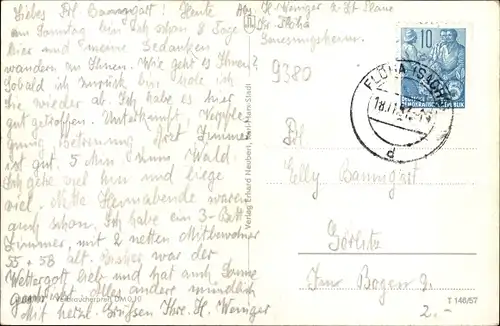 Liebes Frl Baumgart! Heute
am Sonntag bin ich schon 8 Tage
hier und meine Gedanken
wandern zu Ihnen. Wie geht es Ihnen?
Sobald ich zurück bin hole ich
Sie wieder ab. Ich habe es hier
gut getroffen. Unterkunft, Verpfle-
gung, Betreuung, Arzt, Zimmer
ist gut. 5 Min z. Wald.
Ich gehe viel hin und liege
viel. Nette Heimabende waren
auch schon. Ich habe ein 3-Bett
Zimmer, mit 2 netten Mitbewohner
55 + 58 alt. war der
Wettergott lieb und hat auch Sonne
Alles andere mündlich
Mit herzl. Grüßen Ihre H. Weniger
Verbraucherpreis DM 0,20
Abs. H. Weniger z. Zt.
Flöha
Genesungsheim
9380
Verlag Erhard Neubert, Karl-Marx-Stadt
10
DEMOKRATISCHE REPUBLIK
FLÖHA (SACHS)
18.11.
d
Frl.
Elly Baumgart
Görlitz
Bogen 2
T 146/57
2.-